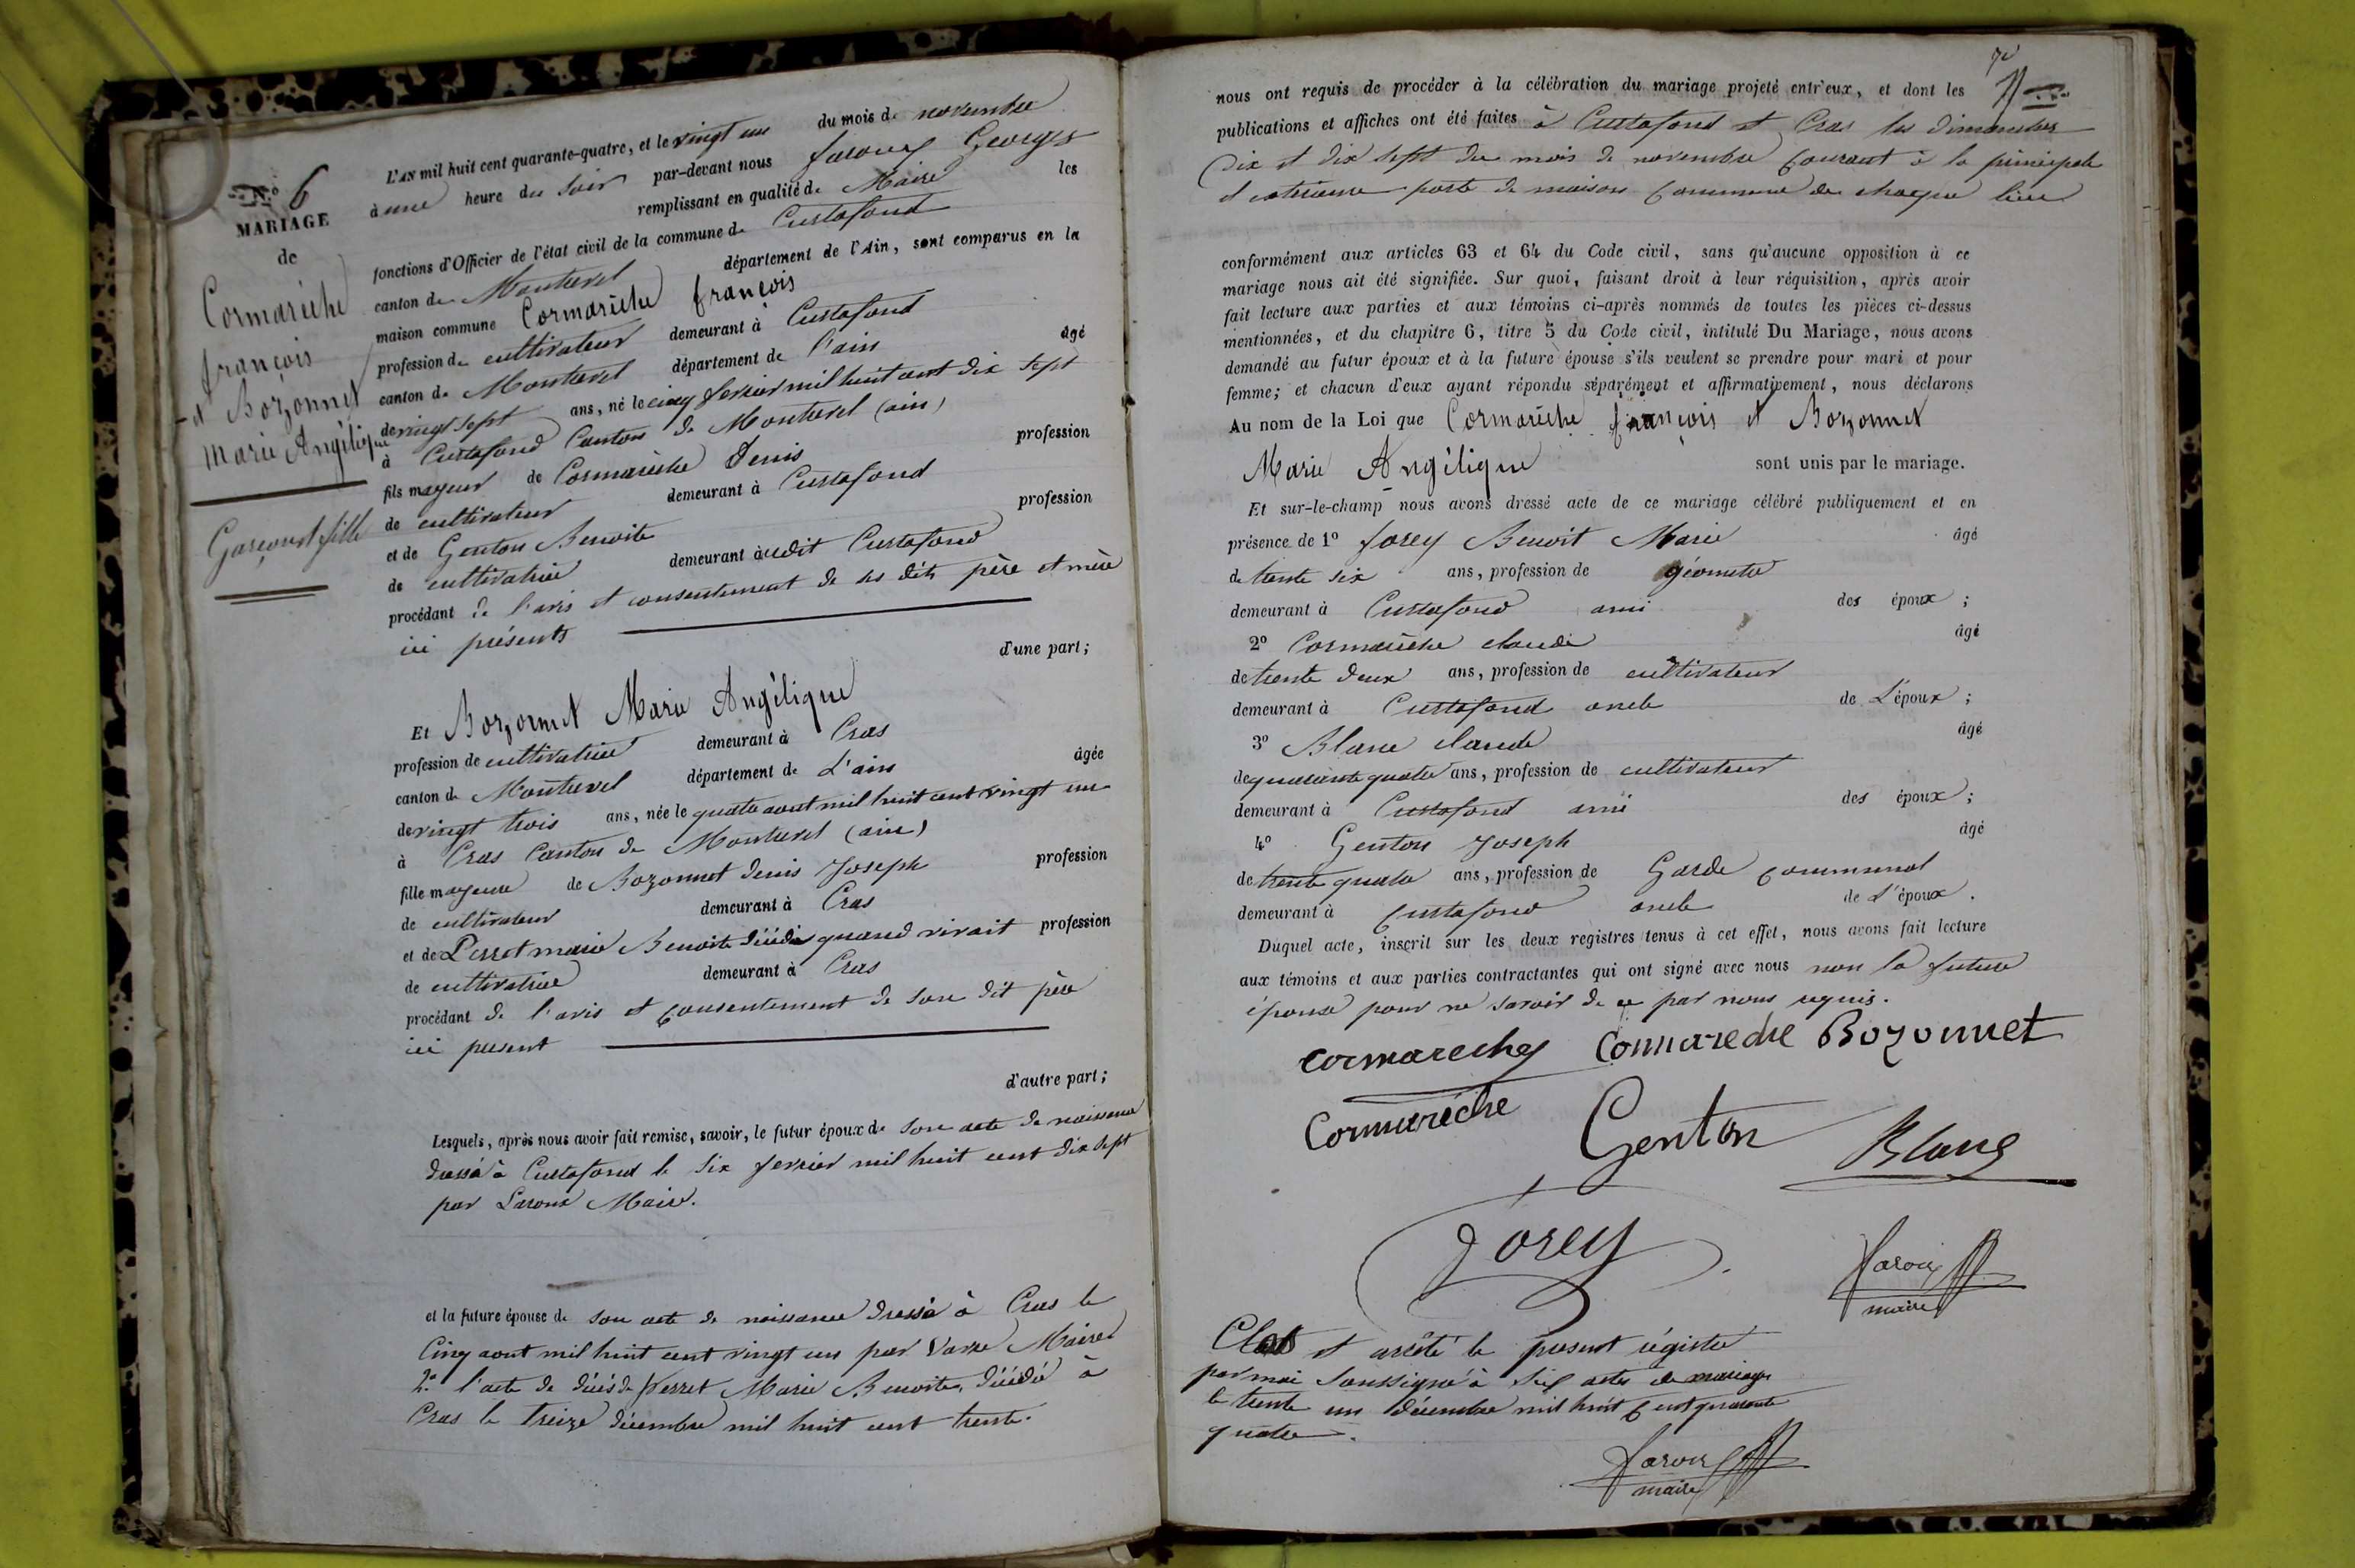 N° 6
MARIAGE
de
Cormarèche
françois
et Bozonnet
Marie Angélique
Garçon et fille
L'AN mil huit cent quarante-quatre, et le vingt un du mois de novembre
à une heure du soir par-devant nous Georges
remplissant en qualité de Maire les
fonctions d'Officier de l'état civil de la commune de Curtafond
canton de Montrevel département de l'Ain, sont comparus en la
maison commune Cormarèche françois
profession de cultivateur demeurant à Curtafond
canton de Montrevel département de l'ain âgé
de vingt sept ans, né le cinq fevrier mil huit cent dix sept
à Curtafond Canton de Montrevel (ain)
fils mageur de Cormarèche Denis profession
de cultivateur demeurant à Curtafond
et de Genton Benoite profession
de cultivatrice demeurant audit Curtafond
procédant de l'avis et consentement de ses dits père et mère
ici présents
d'une part;
Et Bozonnet Marie Angélique
profession de cultivatrice demeurant à Cras
canton de Montrevel département de L'ain âgée
de vingt trois ans, née le quatre aout mil huit cent vingt un
à Cras Canton de Montrevel (ain)
fille mageure de Bozonnet Denis Joseph profession
de cultivateur demeurant à Cras
et de Perret marie Benoite décédée quand vivait profession
de cultivatrice demeurant à Cras
procédant de l'avis et consentement de son dit père
ici present
d'autre part;
Lesquels, après nous avoir fait remise, savoir, le futur époux de son acte de naissance
dressé à Curtafond le six fevrier mil huit cent dix sept
par Maire.
et la future épouse de son acte de naissance dressé à Cras le
Cinq aout mil huit cent vingt un par Maire
2° l'acte de décès de Perret Marie Benoite, décédée à
Cras le treize décembre mil huit cent trente.
nous ont requis de procéder à la célébration du mariage projeté entr'eux, et dont les
publications et affiches ont été faites à Curtafond et Cras les dimanches
Dix et dix sept du mois de novembre courant à la principale
et exterieure porte de maison commune de chaque lieu
conformément aux articles 63 et 64 du Code civil, sans qu'aucune opposition à ce
mariage nous ait été signifiée. Sur quoi, faisant droit à leur réquisition, après avoir
fait lecture aux parties et aux témoins ci-après nommés de toutes les pièces ci-dessus
mentionnées, et du chapitre 6, titre 5 du Code civil, intitulé Du Mariage, nous avons
demandé au futur époux et à la future épouse s'ils veulent se prendre pour mari et pour
femme; et chacun d'eux ayant répondu séparément et affirmativement, nous déclarons
Au nom de la Loi que Cormarèche françois et Bozonnet
Marie Angélique sont unis par le mariage.
Et sur-le-champ nous avons dressé acte de ce mariage célébré publiquement et en
présence de 1° Jorey Benoit Marie âgé
de trente six ans, profession de géometre
demeurant à Curtafond ami des époux;
2° Cormarèche claude âgé
de trente deux ans, profession de cultivateur
demeurant à Curtafond oncle de L'époux;
3° Blanc claude âgé
de quarante quatre ans, profession de cultivateur
demeurant à Curtafond ami des époux;
4° Genton Joseph âgé
de trente quatre ans, profession de Garde communal
demeurant à Curtafond oncle de L'époux.
Duquel acte, inscrit sur les deux registres tenus à cet effet, nous avons fait lecture
aux témoins et aux parties contractantes qui ont signé avec nous non la future
épouse pour ne savoir de ce par nous requis.
cormareche Cormareche Bozonnet
Cormarèche Genton Blanc
Jorey
maire
Clos et arrêté le present régistre
par moi soussigné à six actes de mariage
le trente un décembre mil huit cent quarante
quatre.
maire